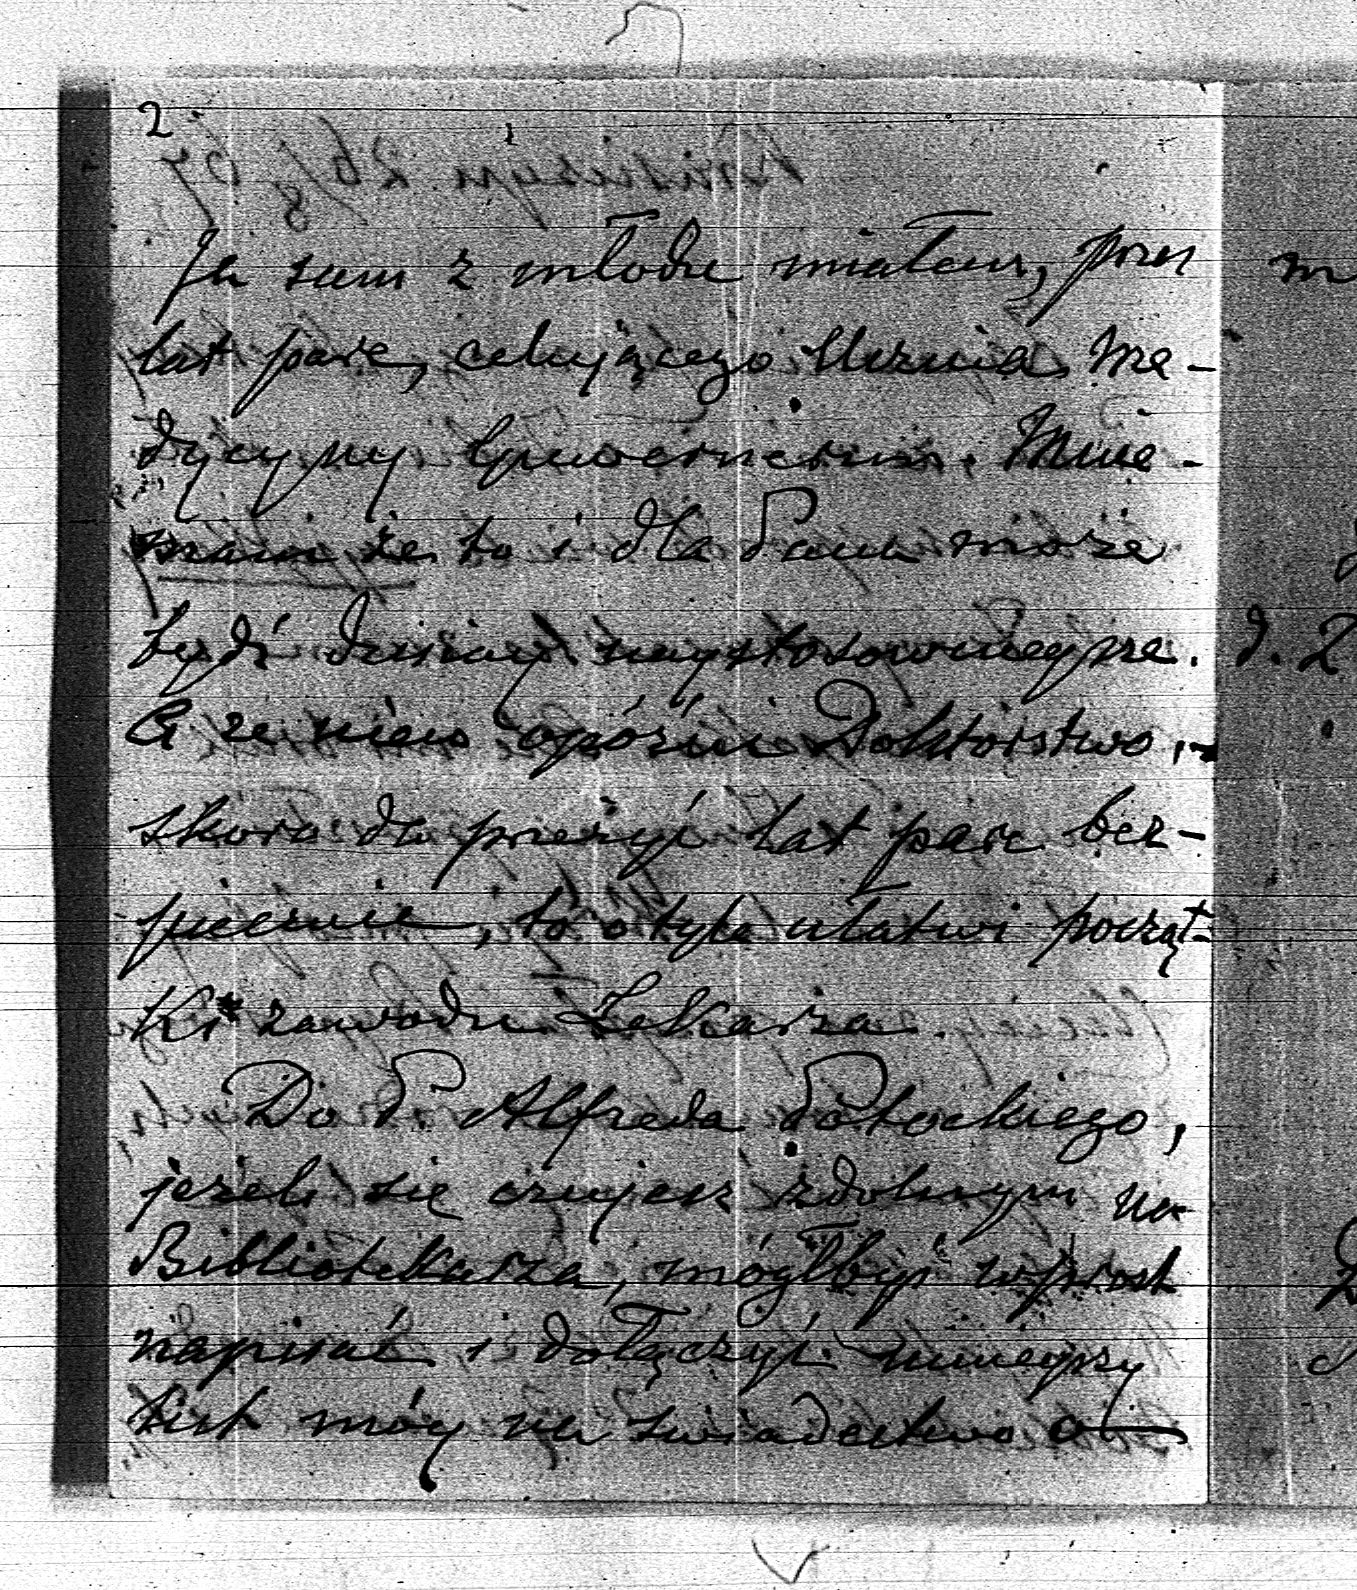 2
Ja sam z młodu miałem, przez
lat parę, celującego Ucznia Me-
dycyny Guwernerem. Mnie-
mam że to i dla Pana może
bydź dzisiay naystosownieysze.
A że nieco opóźni Doktorstwo,
skoro da przeżyć lat parę bez-
piecznie, to o tyle ułatwi począt-
ki zawodu Lekarza.
Do P. Alfreda Potockiego,
jeżeli się czujesz zdolnym na
Bibliotekarza, mógłbyś wprost
napisać i dołączyć ninieyszy
list móy na świadectwo o